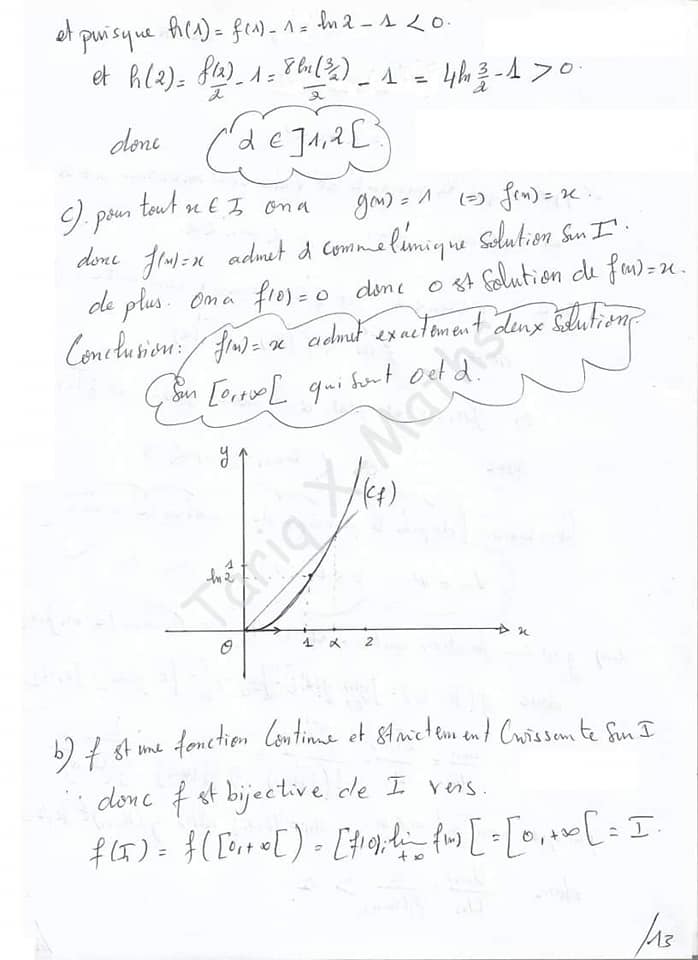 et puisque h(1) = f(1) - 1 = ln2 - 1 < 0.
et h(2) = f(2)/2 - 1 = 8ln(3/2)/2 - 1 = 4ln 3/2 - 1 > 0.
donc α ∈ ]1,2[
c). pour tout x ∈ I on a g(x) = 1 (=) f(x) = x.
donc f(x)=x admet α comme l'unique solution sur I.
de plus. on a f(0) = 0 donc 0 est solution de f(x) = x.
Conclusion: f(x) = x admet exactement deux solution.
sur [0,+∞[ qui sont 0 et α.
y
(Cf)
1
ln2
O 1 α 2 x
Tariq X-Maths
b) f est une fonction continue et strictement croissante sur I
donc f est bijective de I vers.
f(I) = f([0,+∞[) = [f(0); lim +∞ f(x) [ = [0,+∞[ = I.
/13